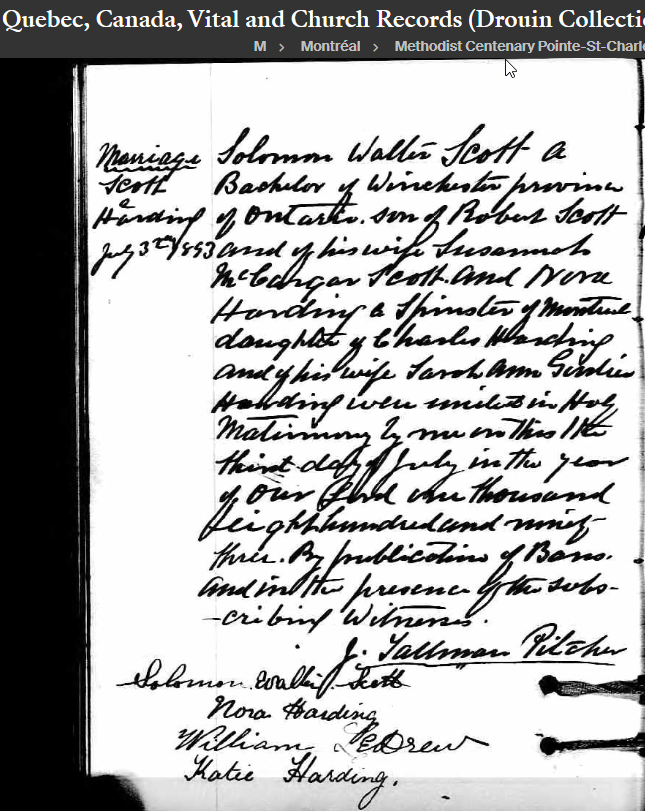 Quebec, Canada, Vital and Church Records (Drouin Collecti
M > Montréal > Methodist Centenary Pointe-St-Charle
Marriage
Scott
&
Harding
July 3rd 1893
Solomon Walter Scott a
Bachelor of Winchester province
of Ontario. son of Robert Scott
and of his wife Susannah
McCargar Scott. and Nora
Harding a Spinster of Montreal
daughter of Charles Harding
and of his wife Sarah Ann
Harding were united in Holy
Matrimony by me on this the
third day of July in the year
of Our Lord one thousand
eight hundred and ninety-
three. By publication of Bans.
and in the presence of the subs-
-cribing Witnesses.
J. Tallman Pitcher
Solomon Walter Scott
Nora Harding
William LeDrew
Katie Harding.